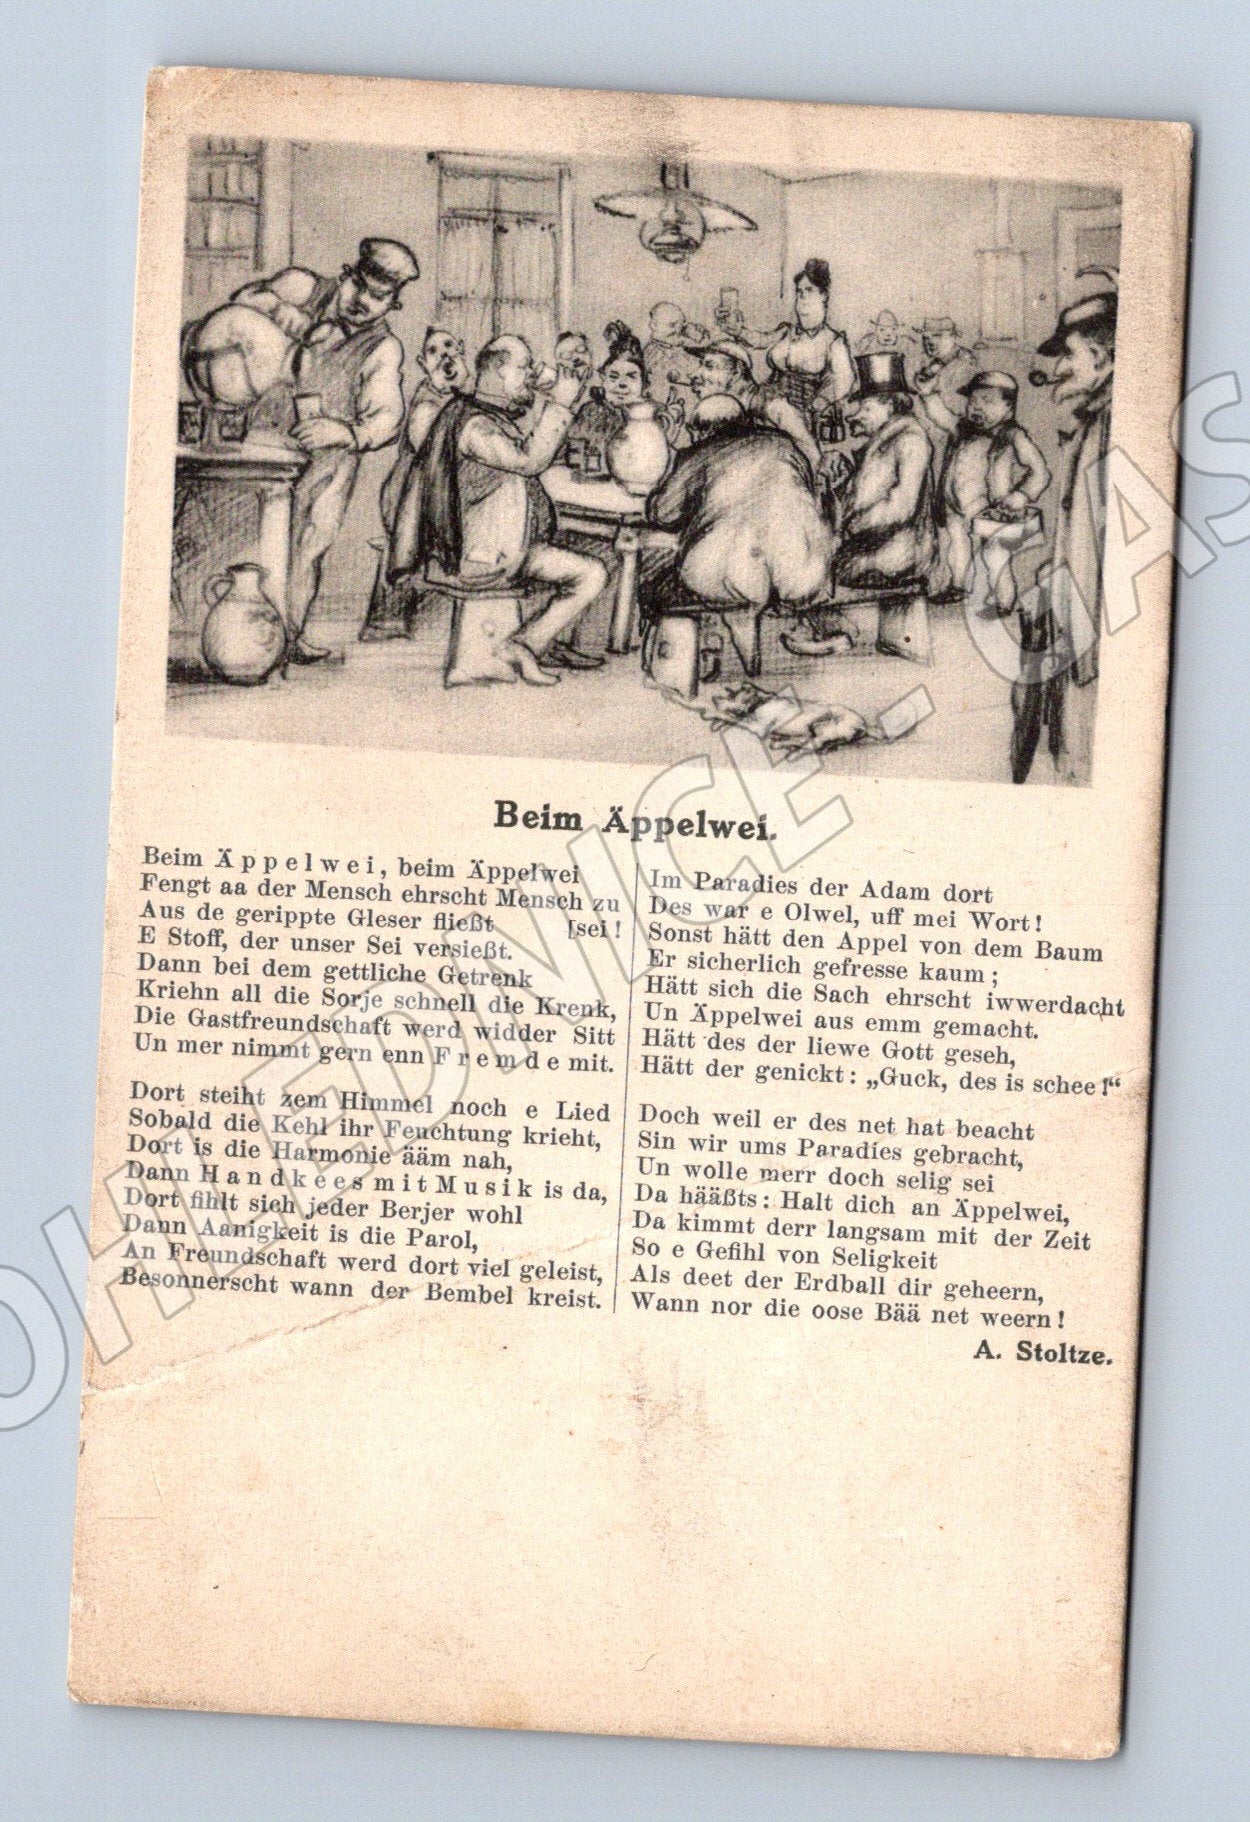 Beim Äppelwei.
Beim Äppelwei, beim Äppelwei
Fengt aa der Mensch ehrscht Mensch zu
Aus de gerippte Gleser fließt [sei!
E Stoff, der unser Sei versießt.
Dann bei dem gettliche Getrenk
Kriehn all die Sorje schnell die Krenk,
Die Gastfreundschaft werd widder Sitt
Un mer nimmt gern enn Fremde mit.
Dort steiht zem Himmel noch e Lied
Sobald die Kehl ihr Feuchtung krieht,
Dort is die Harmonie ääm nah,
Dann Handkees mit Musik is da,
Dort fihlt sich jeder Berjer wohl
Dann Aanigkeit is die Parol,
An Freundschaft werd dort viel geleist,
Besonnerscht wann der Bembel kreist.
Im Paradies der Adam dort
Des war e Olwel, uff mei Wort!
Sonst hätt den Appel von dem Baum
Er sicherlich gefresse kaum;
Hätt sich die Sach ehrscht iwwerdacht
Un Äppelwei aus emm gemacht.
Hätt des der liewe Gott geseh,
Hätt der genickt: „Guck, des is schee!“
Doch weil er des net hat beacht
Sin wir ums Paradies gebracht,
Un wolle merr doch selig sei
Da hääßts: Halt dich an Äppelwei,
Da kimmt derr langsam mit der Zeit
So e Gefihl von Seligkeit
Als deet der Erdball dir geheern,
Wann nor die oose Bää net weern!
A. Stoltze.